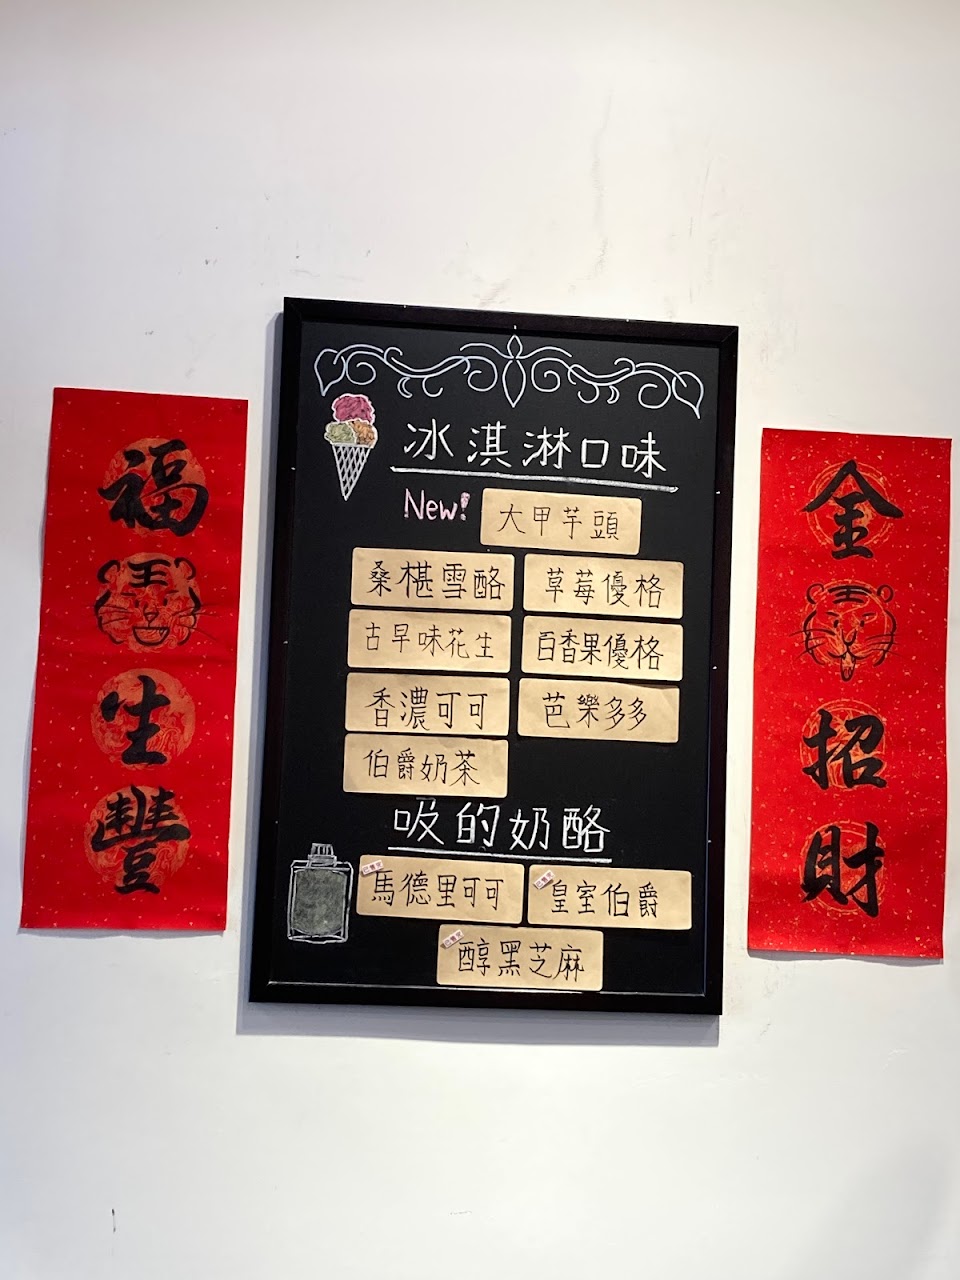 冰淇淋口味
New!
大甲芋頭
桑椹雪酪
草莓優格
古早味花生
百香果優格
香濃可可
芭樂多多
伯爵奶茶
吸的奶酪
已售完
馬德里可可
已售完
皇室伯爵
已售完
醇黑芝麻
福
王
生
豐
金
王
招
財